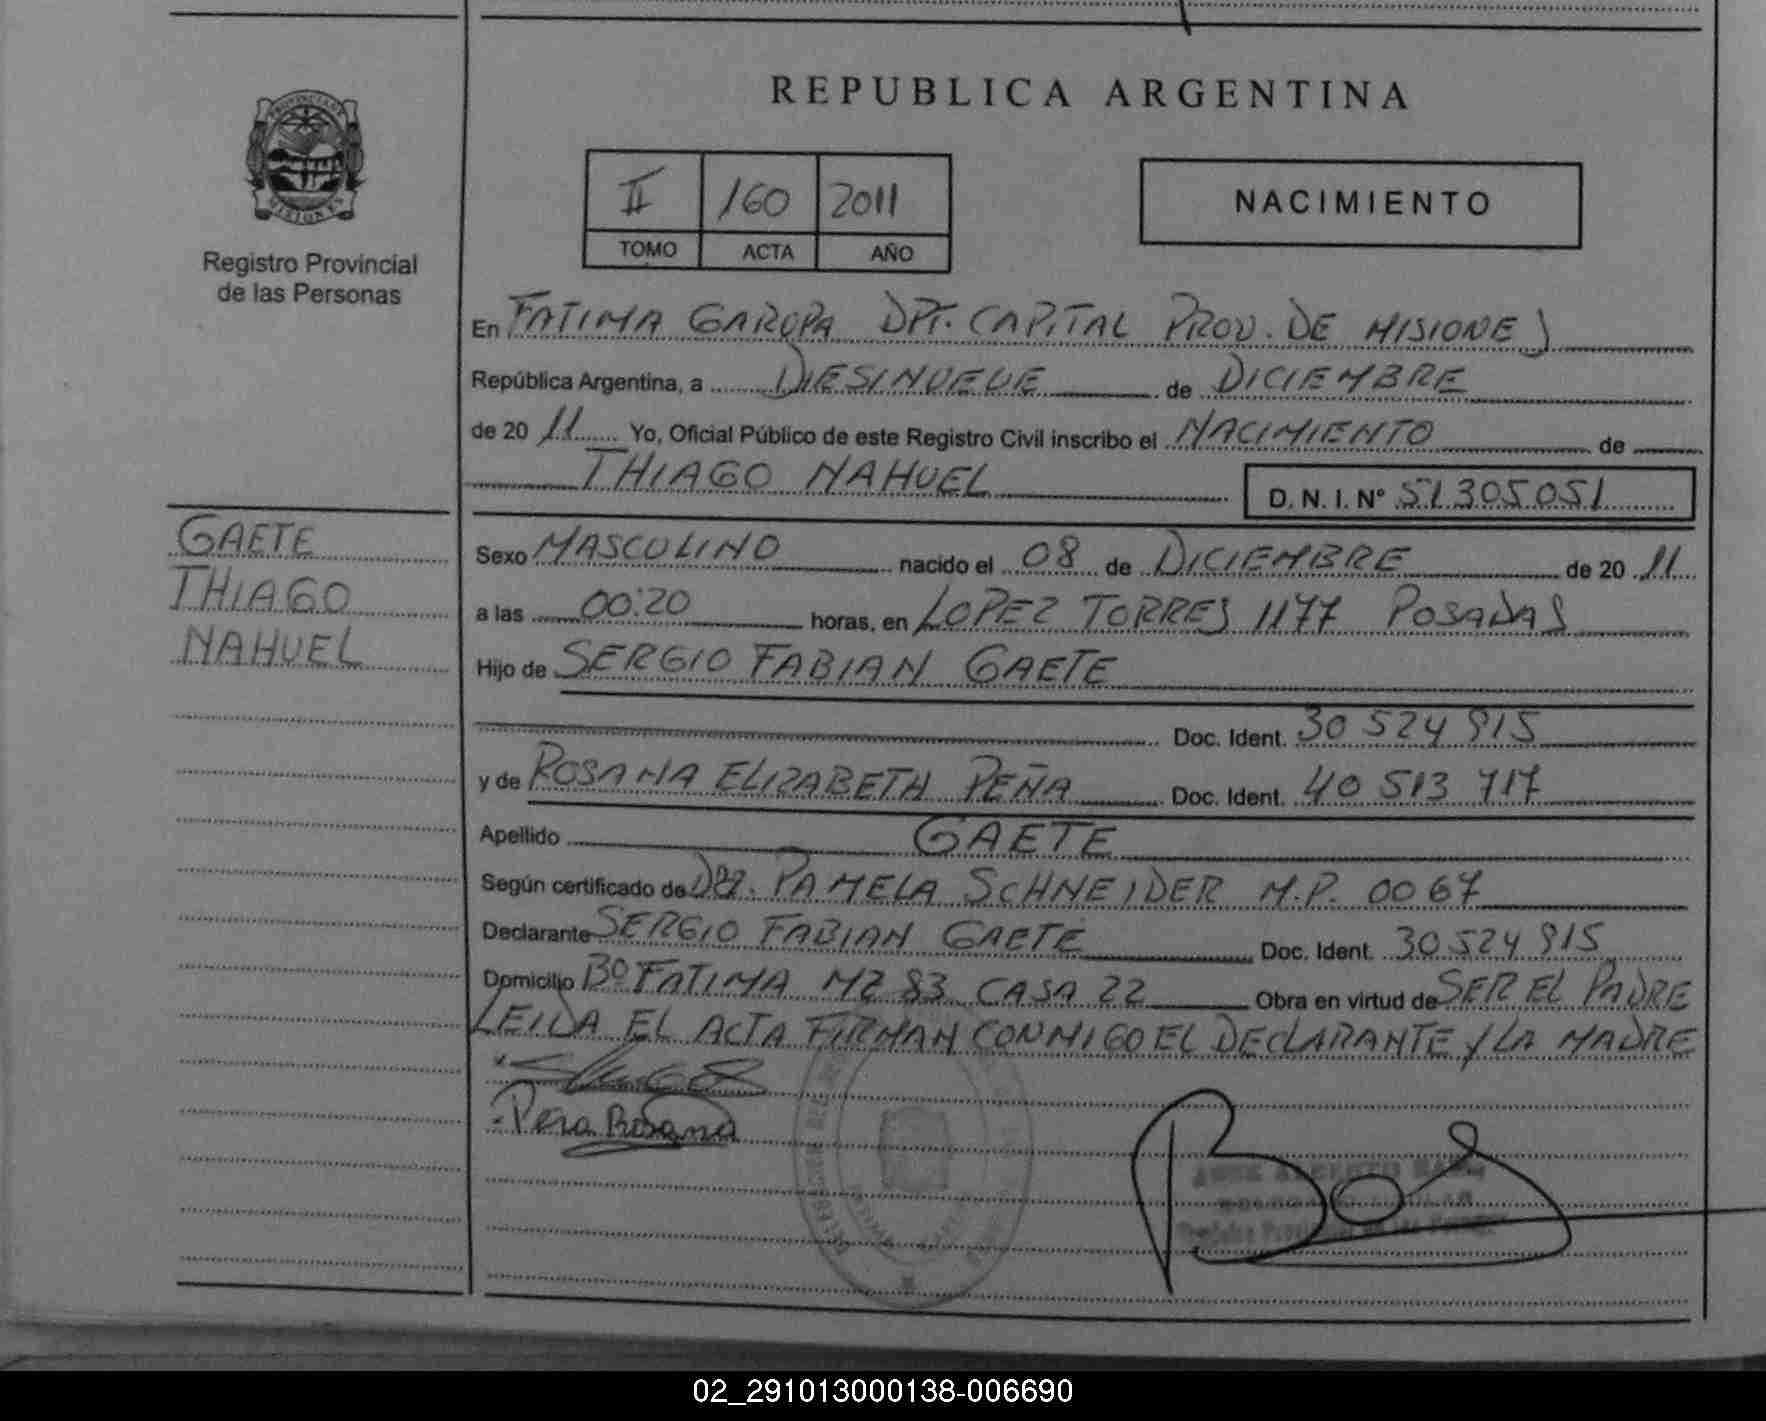 REPUBLICA ARGENTINA
PROVINCIA DE
MISIONES
Registro Provincial
de las Personas
II 160 2011
TOMO ACTA AÑO
NACIMIENTO
En FATIMA GARUPA DPT. CAPITAL PROV. DE MISIONES
República Argentina, a DIESINUEVE de DICIEMBRE
de 20 11 Yo, Oficial Público de este Registro Civil inscribo el NACIMIENTO de
THIAGO NAHUEL
D. N. I. Nº 51305051
GAETE
THIAGO
NAHUEL
Sexo MASCULINO nacido el 08 de DICIEMBRE de 20 11
a las 00:20 horas, en LOPEZ TORRES 1177 POSADAS
Hijo de SERGIO FABIAN GAETE
Doc. Ident. 30 524 915
y de ROSANA ELIZABETH PEÑA Doc. Ident. 40 513 717
Apellido GAETE
Según certificado de DRA. PAMELA SCHNEIDER M.P. 0067
Declarante SERGIO FABIAN GAETE Doc. Ident. 30 524 915
Domicilio Bº FATIMA MZ 83 CASA 22 Obra en virtud de SER EL PADRE
LEIDA EL ACTA FIRMAN CONMIGO EL DECLARANTE y LA MADRE
Peña Rosana
02_291013000138-006690